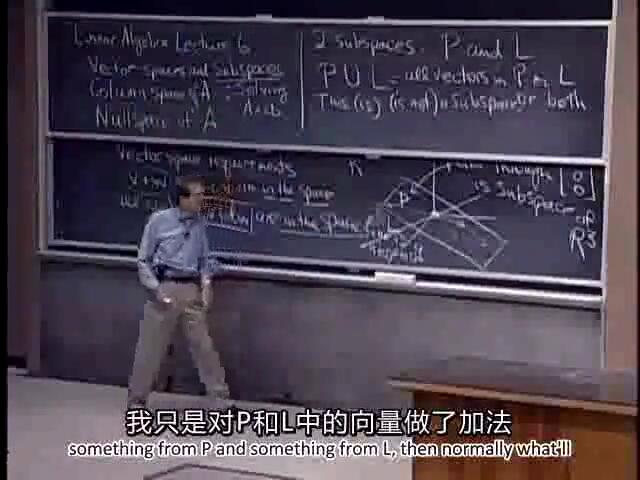 Linear Algebra Lecture 6
Vector spaces and Subspaces
Column space of A Solving
Nullspace of A Ax=b
2 subspaces P and L
P ∪ L = all vectors in P or L
This (is) (is not) a subspace or both
Vector space requirements
are in the space
through
is subspace
of
R³
P
L
我只是对P和L中的向量做了加法
something from P and something from L, then normally what'll